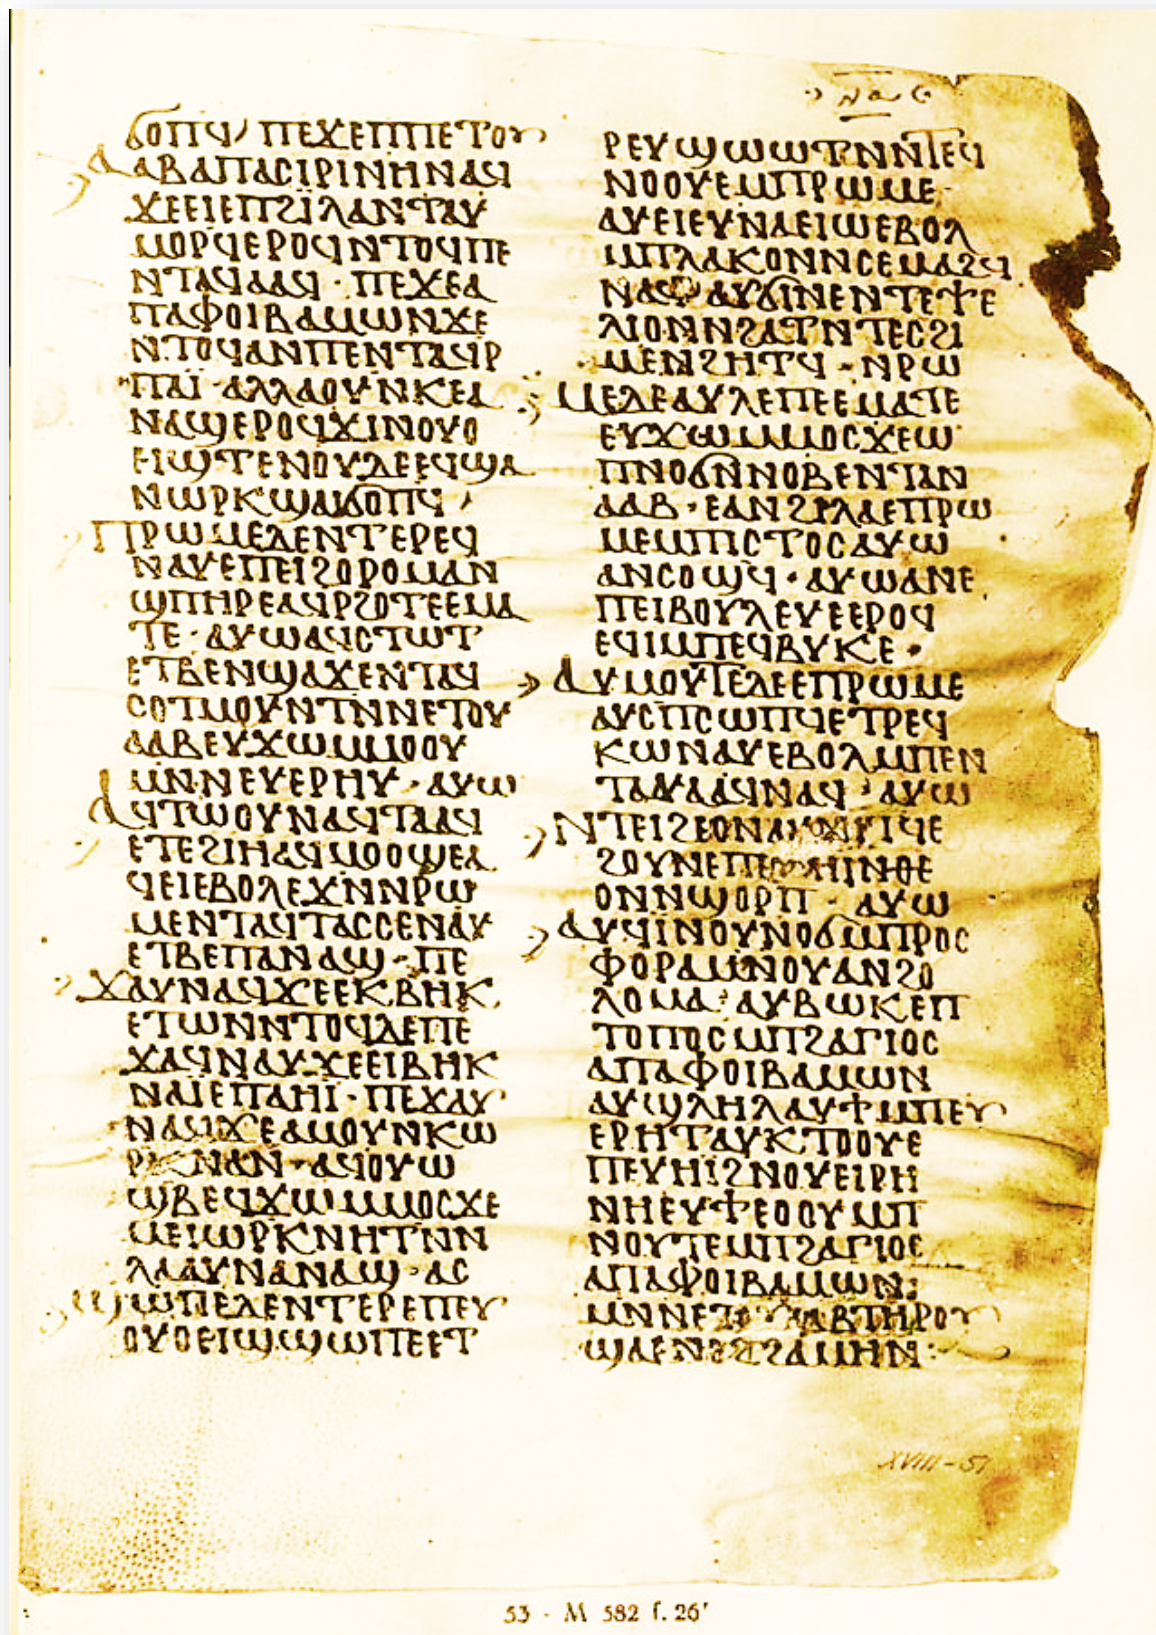 ⲛⲁ
ϭⲟⲡϥ ⲡⲉϫⲉⲡⲡⲉⲧⲟⲩ
ⲁⲁⲃⲁⲡⲁⲥⲓⲣⲓⲛⲏⲛⲁϥ
ϫⲉⲉⲓⲉⲡϩⲓⲗⲁⲛⲧⲁⲩ
ⲙⲟⲣϥⲉⲣⲟϥⲛⲧⲟϥⲡⲉ
ⲛⲧⲁϥⲁⲁϥ · ⲡⲉϫⲉⲁ
ⲡⲁⲫⲟⲓⲃⲁⲙⲱⲛϫⲉ
ⲛⲧⲟϥⲁⲛⲡⲉⲛⲧⲁϥⲣ
ⲡⲁⲓ̈ · ⲁⲗⲗⲁⲟⲩⲛⲕⲉⲁ
ⲛⲁϣⲉⲣⲟϥϫⲓⲛⲟⲩⲟ
ⲉⲓϣⲧⲉⲛⲟⲩⲇⲉⲉϥϣⲁ
ⲛⲱⲣⲕϣⲁⲓϭⲟⲡϥ
ⲡⲣⲱⲙⲉⲇⲉⲛⲧⲉⲣⲉϥ
ⲛⲁⲩⲉⲡⲉⲓϩⲟⲣⲟⲙⲁⲛ
ϣⲡⲏⲣⲉⲁϥⲣϩⲟⲧⲉⲉⲙⲁ
ⲧⲉ · ⲁⲩⲱⲁϥⲥⲧⲱⲧ
ⲉⲧⲃⲉⲛϣⲁϫⲉⲛⲧⲁϥ
ⲥⲟⲧⲙⲟⲩⲛⲧⲛⲛⲉⲧⲟⲩ
ⲁⲁⲃⲉⲩϫⲱⲙⲙⲟⲟⲩ
ⲙⲛⲛⲉⲩⲉⲣⲏⲩ · ⲁⲩⲱ
ⲁϥⲧⲱⲟⲩⲛⲁϥⲧⲁⲁϥ
ⲉⲧⲉϩⲓⲏⲁϥⲙⲟⲟϣⲉⲁ
ϥⲉⲓⲉⲃⲟⲗⲉϫⲛⲛⲣⲱ
ⲙⲉⲛⲧⲁϥⲧⲁⲥⲥⲉⲛⲁⲩ
ⲉⲧⲃⲉⲡⲁⲛⲁϣ · ⲡⲉ
ϫⲁⲩⲛⲁϥϫⲉⲉⲕⲃⲏⲕ
ⲉⲧⲱⲛⲛⲧⲟϥⲇⲉⲡⲉ
ϫⲁϥⲛⲁⲩϫⲉⲉⲓⲃⲏⲕ
ⲛⲁⲓⲉⲡⲁⲏⲓ · ⲡⲉϫⲁⲩ
ⲛⲁϥϫⲉⲁⲙⲟⲩⲛⲕⲱ
ⲣⲕⲛⲁⲛ · ⲁϥⲟⲩⲱ
ϣⲃⲉϥϫⲱⲙⲙⲟⲥϫⲉ
ⲙⲉⲓⲱⲣⲕⲛⲏⲧⲛⲛ
ⲗⲁⲁⲩⲛⲁⲛⲁϣ · ⲁⲥ
ϣⲱⲡⲉⲇⲉⲛⲧⲉⲣⲉⲡⲉⲩ
ⲟⲩⲟⲉⲓϣϣⲱⲡⲉⲉⲧ
ⲣⲉⲩϣⲱⲱⲧⲛⲛⲧⲉϥ
ⲛⲟⲟⲩⲉⲙⲡⲣⲱⲙⲉ ·
ⲁⲩⲉⲓⲉⲩⲛⲁⲉⲓⲱⲉⲃⲟⲗ
ⲙⲡⲗⲁⲕⲟⲛⲛⲥⲉⲙⲁϩϥ
ⲁⲩϭⲓⲛⲉⲛⲧⲉⲯⲉ
ⲗⲓⲟⲛⲛϩⲁⲧⲛⲧⲉⲥϩⲓ
ⲙⲉⲛϩⲏⲧϥ · ⲛⲣⲱ
ⲙⲉⲇⲉⲁⲩⲗⲉⲡⲉⲉⲙⲁⲧⲉ
ⲉⲩϫⲱⲙⲙⲟⲥϫⲉⲱ
ⲡⲛⲟϭⲛⲛⲟⲃⲉⲛⲧⲁⲛ
ⲁⲁⲃ · ⲉⲁⲛϩⲓⲗⲁⲉⲡⲣⲱ
ⲙⲉⲙⲡⲓⲥⲧⲟⲥⲁⲩⲱ
ⲁⲛⲥⲟϣϥ · ⲁⲩⲱⲁⲛⲉ
ⲡⲉⲓⲃⲟⲩⲗⲉⲩⲉⲉⲣⲟϥ
ⲉϥⲓⲙⲡⲉϥⲃⲩⲕⲉ ·
ⲁⲩⲙⲟⲩⲧⲉⲇⲉⲉⲡⲣⲱⲙⲉ
ⲁⲩⲥⲡⲥⲱⲡϥⲉⲧⲣⲉϥ
ⲕⲱⲛⲁⲩⲉⲃⲟⲗⲙⲡⲉⲛ
ⲧⲁⲩⲁⲁϥⲛⲁϥ · ⲁⲩⲱ
ⲛⲧⲉⲓϩⲉⲟⲛ
ϩⲟⲩⲛ
ⲟⲛⲛϣⲟⲣⲡ · ⲁⲩⲱ
ⲁⲩϥⲓⲛⲟⲩⲛⲟϭⲙⲡⲣⲟⲥ
ⲫⲟⲣⲁⲙⲛⲟⲩⲁⲛϩⲟ
ⲗⲟⲙⲁ · ⲁⲩⲃⲱⲕⲉⲡ
ⲧⲟⲡⲟⲥⲙⲡϩⲁⲅⲓⲟⲥ
ⲁⲡⲁⲫⲟⲓⲃⲁⲙⲱⲛ
ⲁⲩϣⲗⲏⲗⲁⲩϯⲙⲡⲉⲩ
ⲉⲣⲏⲧⲁⲩⲕⲧⲟⲟⲩⲉ
ⲡⲉⲩⲏⲓ̈ϩⲛⲟⲩⲉⲓⲣⲏ
ⲛⲏⲉⲩϯⲉⲟⲟⲩⲙⲡ
ⲛⲟⲩⲧⲉⲙⲡϩⲁⲅⲓⲟⲥ
ⲁⲡⲁⲫⲟⲓⲃⲁⲙⲱⲛ:
ⲙⲛⲛⲉⲧⲟⲩⲁⲁⲃⲧⲏⲣⲟⲩ
ϣⲁⲉⲛⲉϩϩⲁⲙⲏⲛ:
XVIII-51
53 - M 582 f. 26ʳ